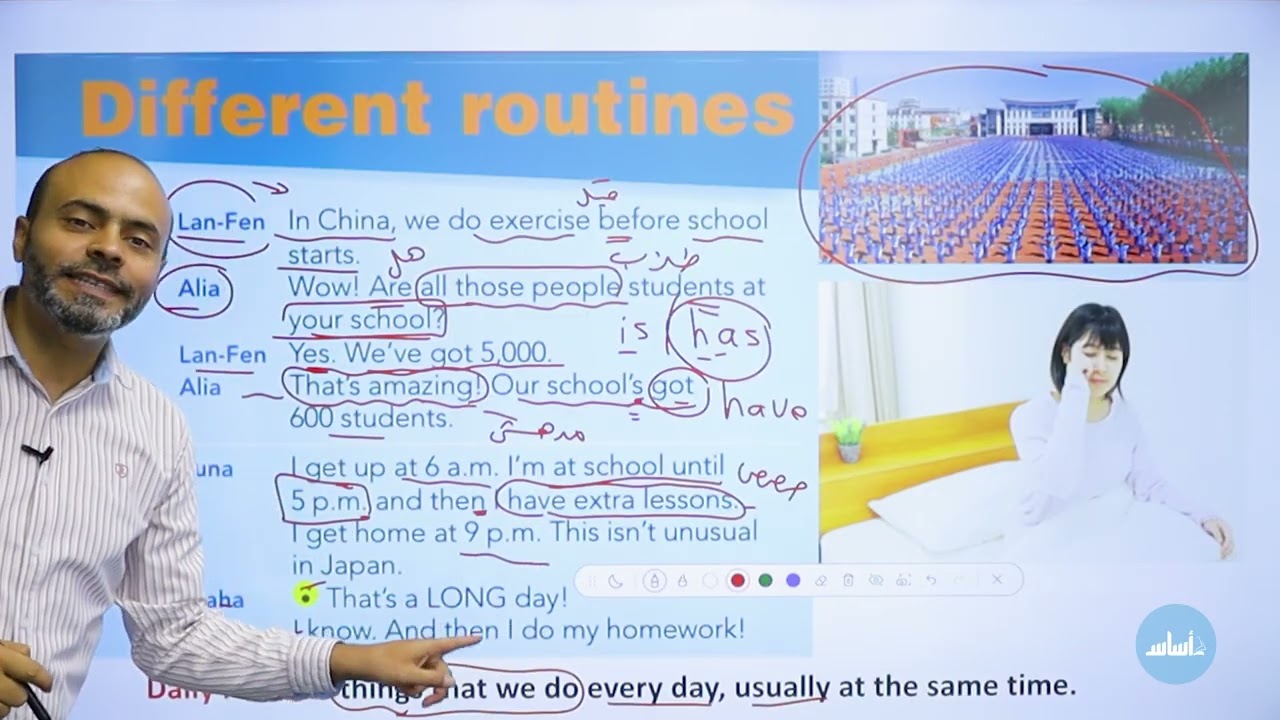 Different routines
Lan-Fen In China, we do exercise before school
starts.
Alia Wow! Are all those people students at
your school?
is has
Lan-Fen Yes. We've got 5,000.
Alia That's amazing! Our school's got
have
600 students.
una I get up at 6 a.m. I'm at school until
5 p.m. and then I have extra lessons.
I get home at 9 p.m. This isn't unusual
in Japan.
aha That's a LONG day!
I know. And then I do my homework!
أساس
Daily things that we do every day, usually at the same time.